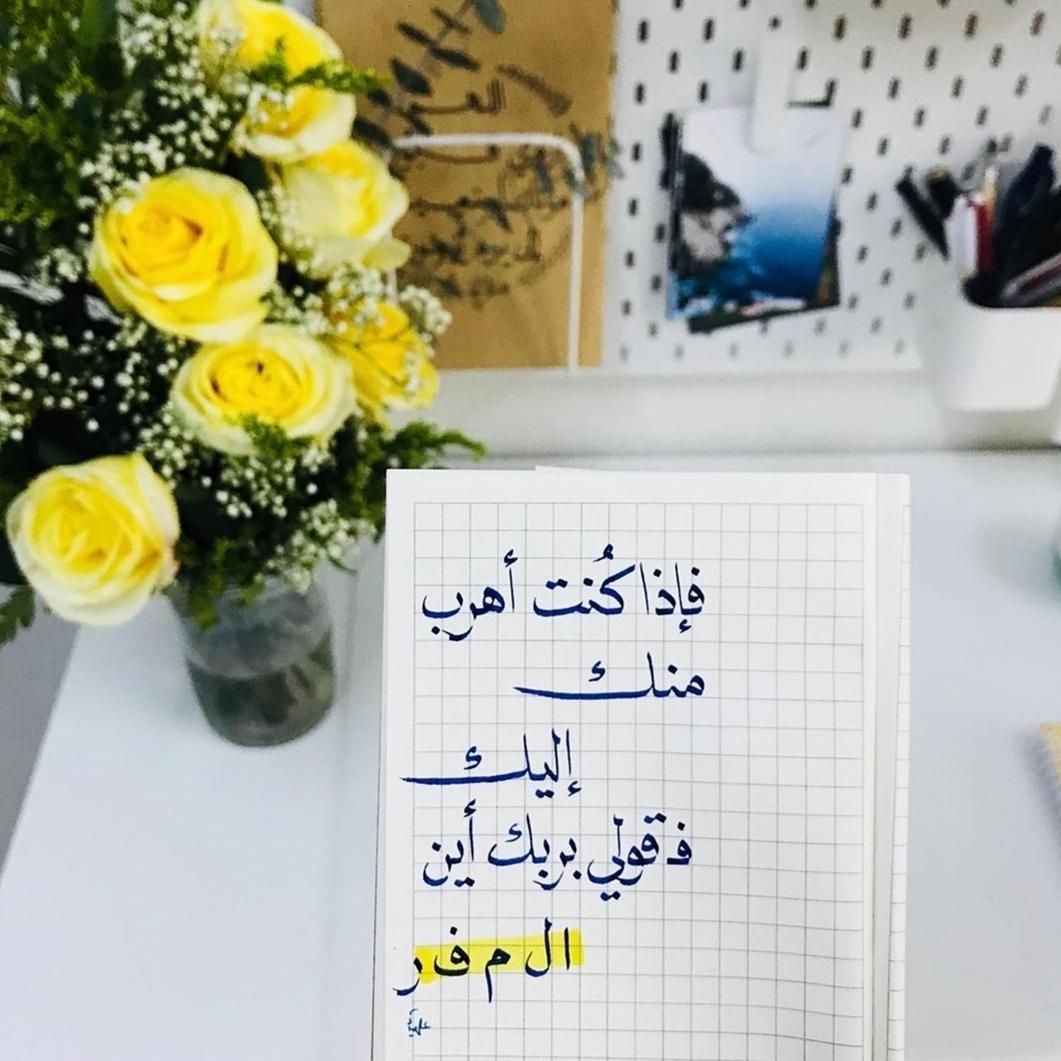 فإذا كُنت أهرب
منك
إليك
فقولي بربك أين
ال م ف ر